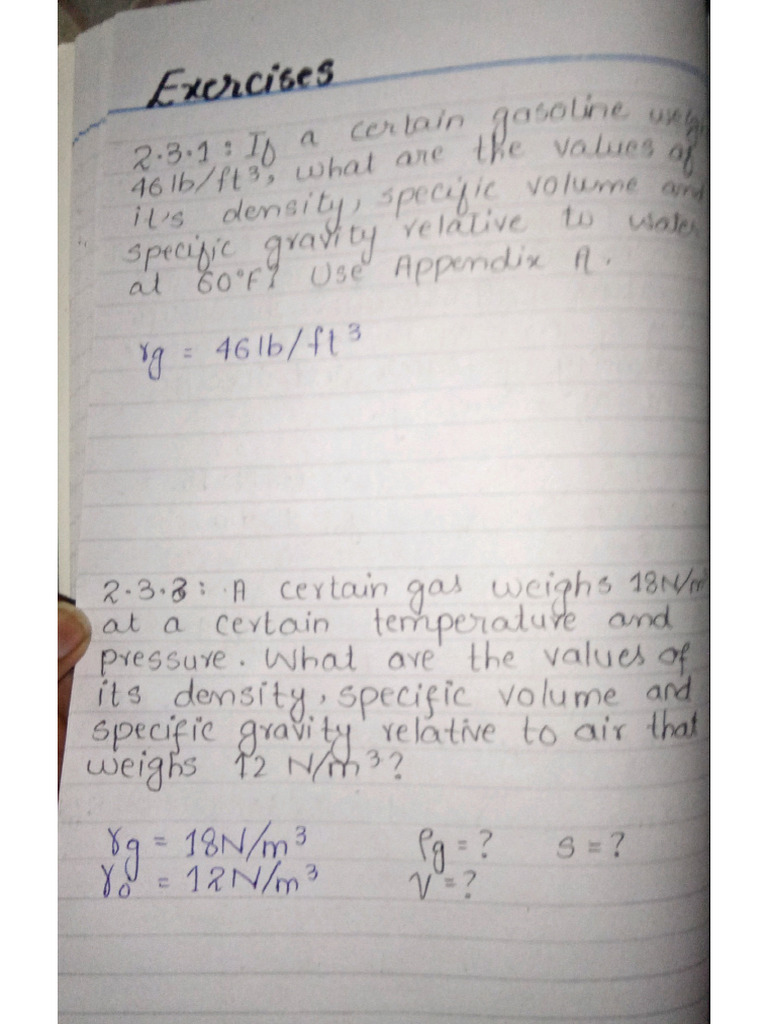 Exercises
2.3.1: If a certain gasoline
46 lb/ft³, what are the values of
it's density, specific volume and
specific gravity relative to water
at 60°F? Use Appendix A.
γg = 46 lb/ft³
2.3.3: A certain gas weighs 18N/m
at a certain temperature and
pressure. What are the values of
its density, specific volume and
specific gravity relative to air that
weighs 12 N/m³?
γg = 18N/m³ ρg = ? S = ?
γo = 12N/m³ V = ?